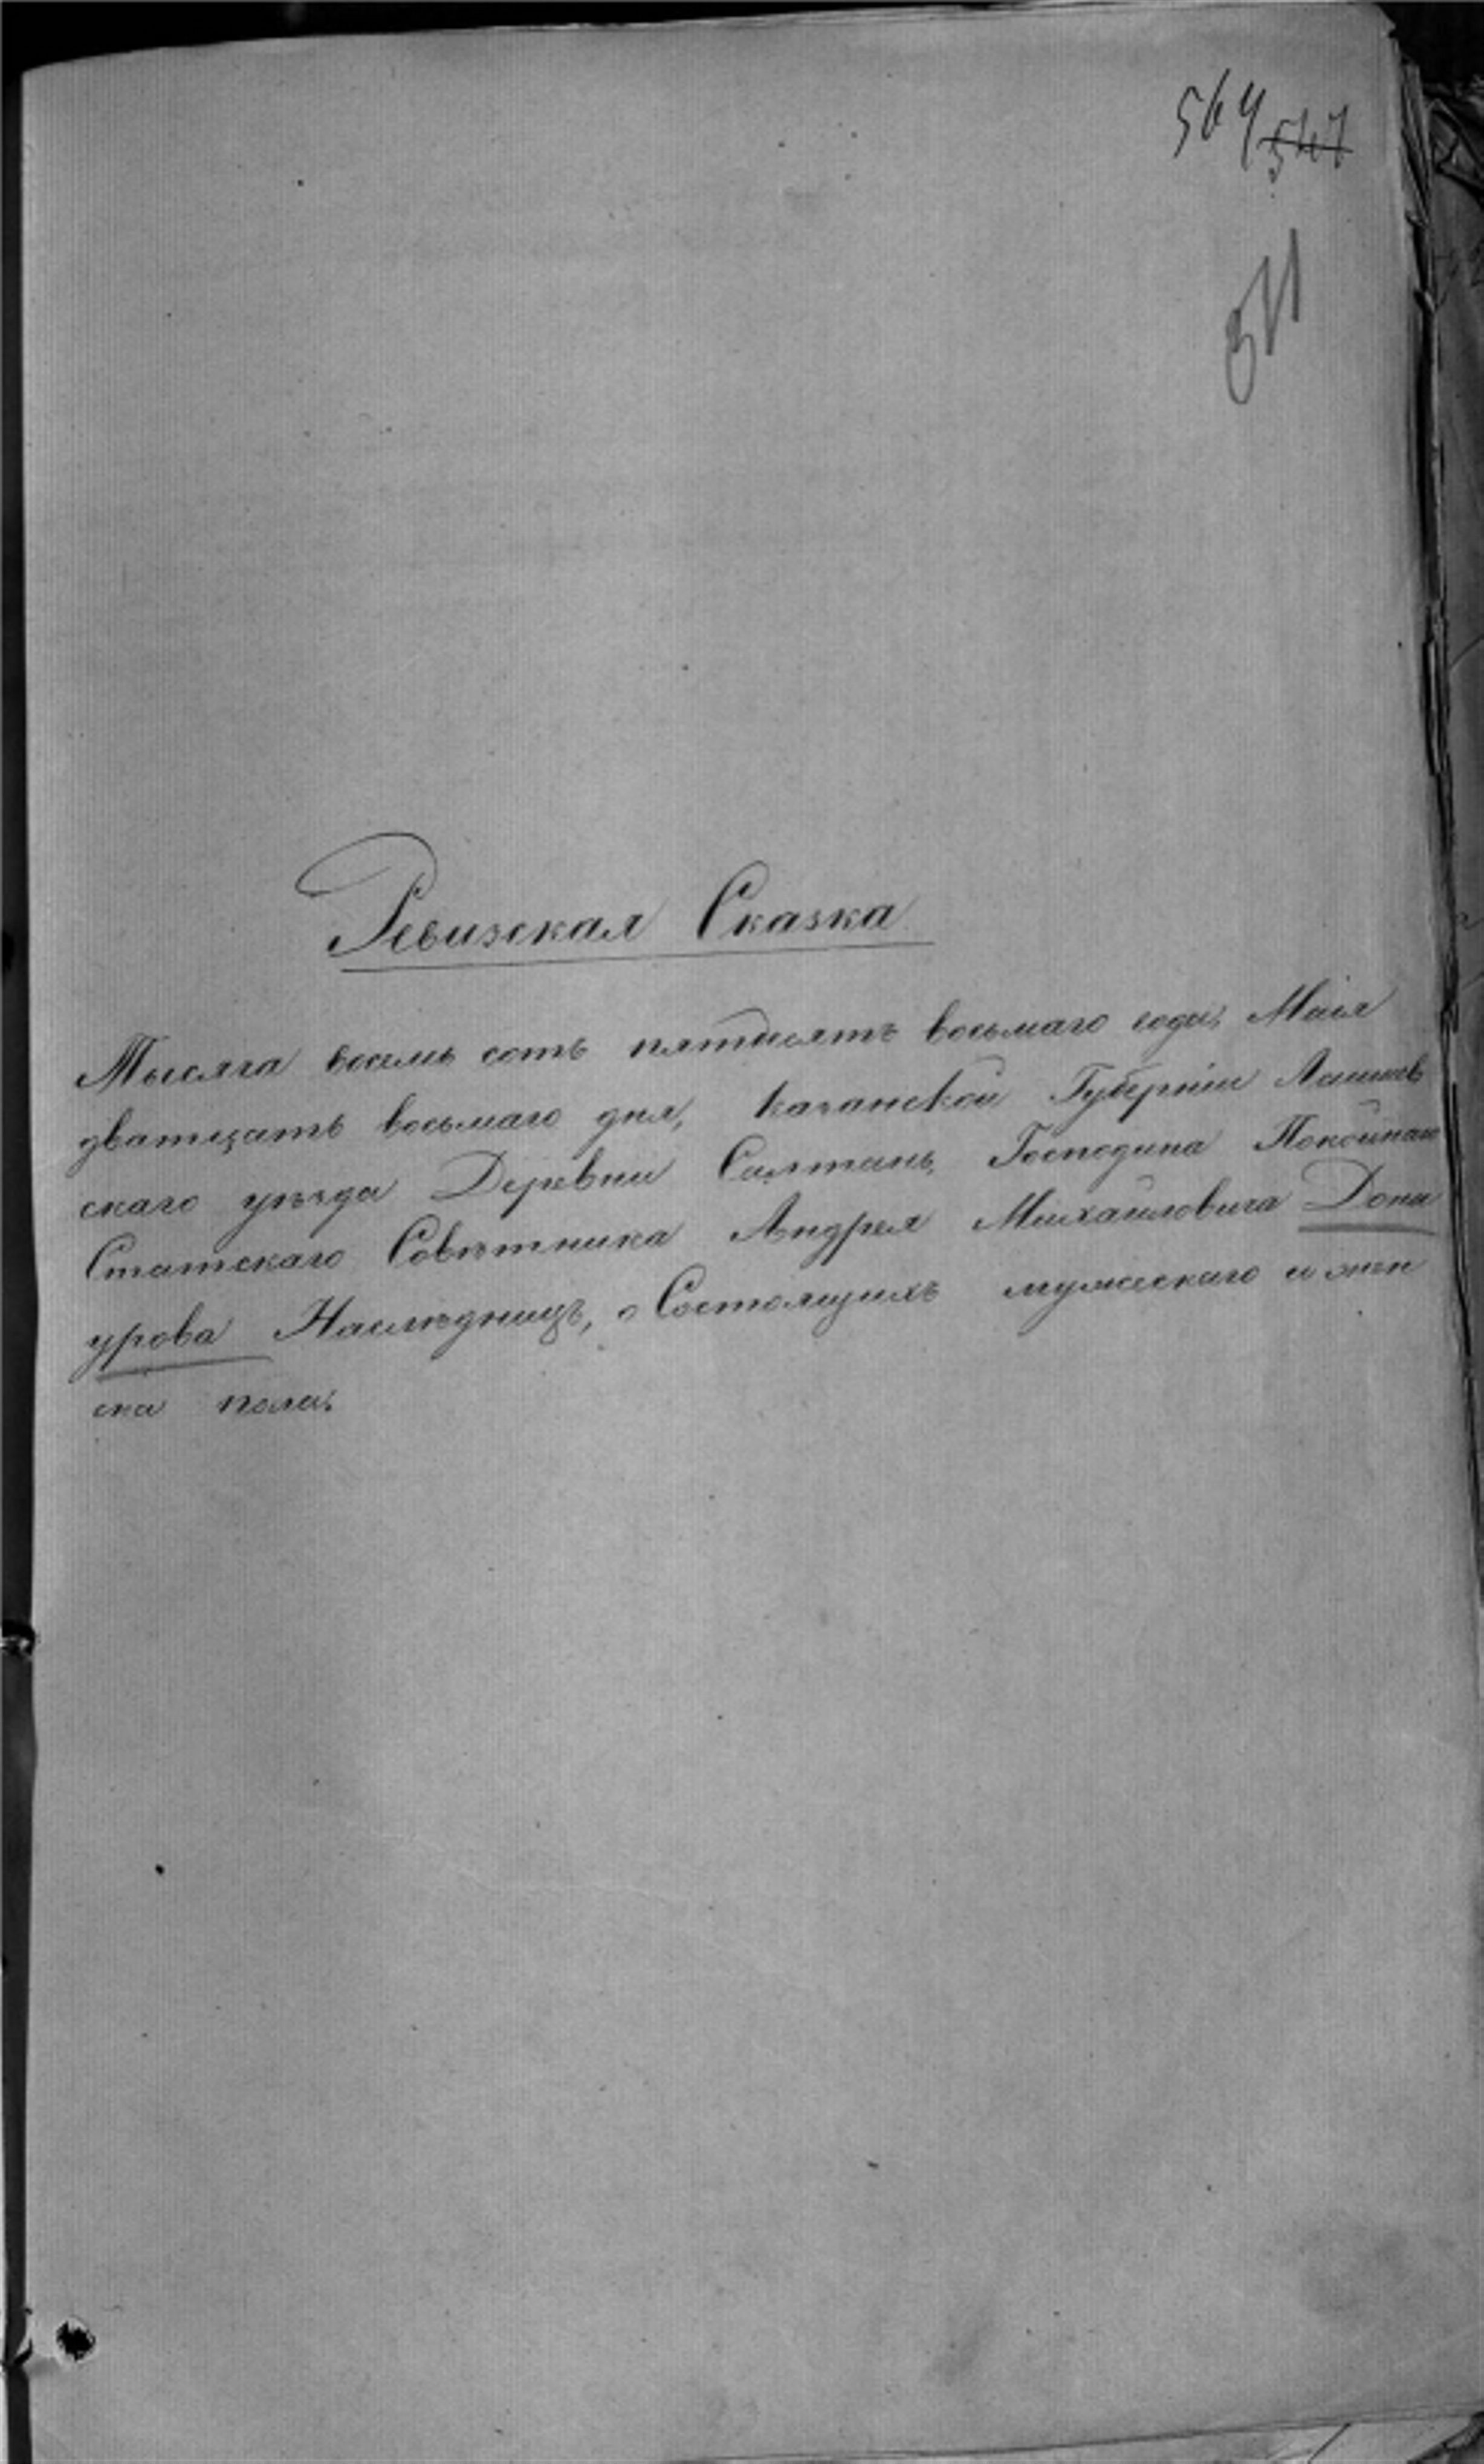 564 547
511
Ревизская Сказка
Тысяча восемь сотъ пятдесятъ восьмаго года, Маія
дватцать восьмаго дня, Казанской Губерніи Лаишев
скаго уѣзда Деревни Салтанъ, Господина Покойнаго
Статскаго Совѣтника Андрея Михайловича Дона
урова Наслѣдницъ, о Состоящихъ мужескаго и жен
ска пола.